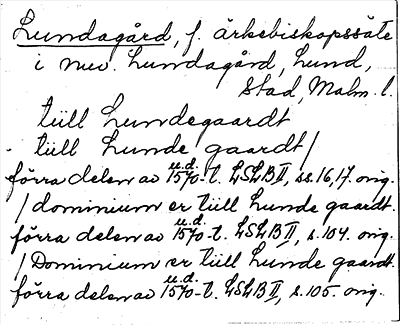 Lundagård, f. ärkebiskopssäte
i nuv. Lundagård, Lund,
Stad, Malm. l.
tüll Lundegaardt
tüll Lunde gaardt /
förra delen av u.d. 1570-t. LSLB II, ss. 16, 17. orig.
/ dominium er tüll Lunde gaardt.
förra delen av u.d. 1570-t. LSLB II, s. 104. orig.
/ Dominium er tüll Lunde gaardt.
förra delen av u.d. 1570-t. LSLB II, s. 105. orig.